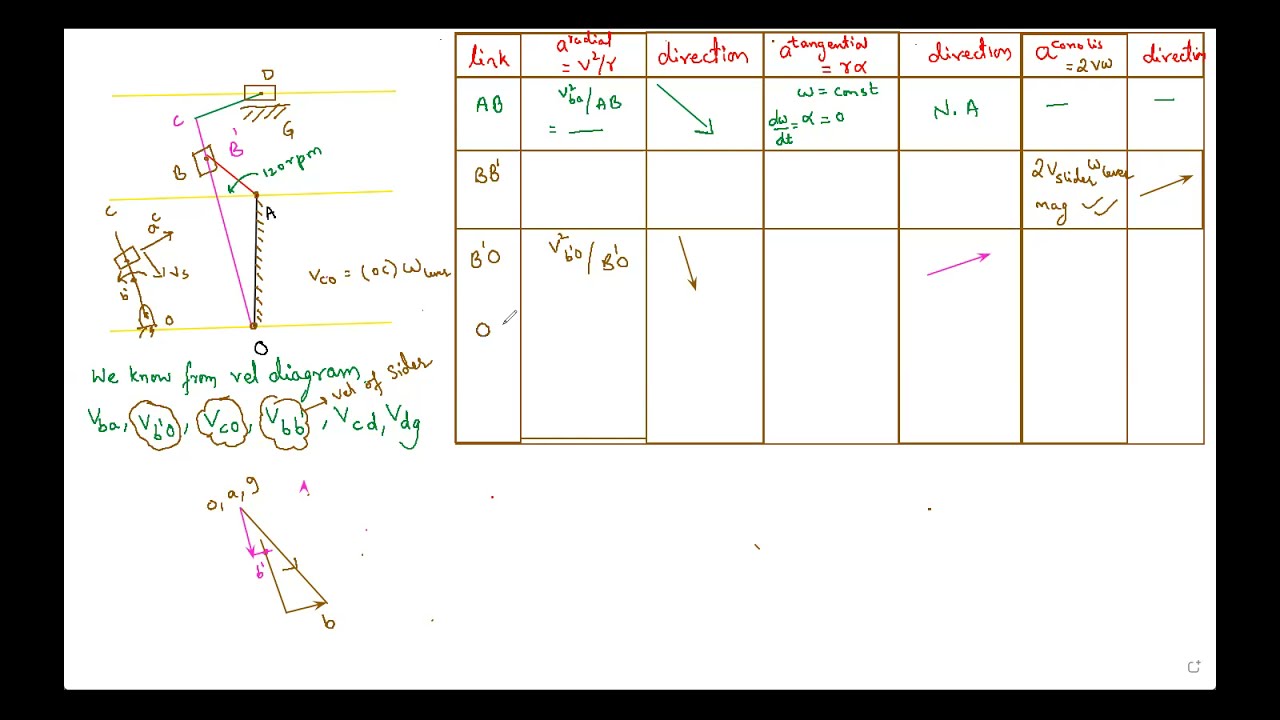 D
C
G
B'
B
120rpm
A
C
aᶜ
Vs
b'
O
V_CO = (OC) ω_lever
O
We know from vel diagram
V_ba, V_b'O, V_CO, V_bb', V_cd, V_dg
vel of Sider
o, a, g
b'
b
link
a^radial = V²/r
direction
a^tangential = rα
direction
a^coriolis = 2Vω
direction
AB
V²_ba / AB
= —
ω = const
dω/dt = α = 0
N.A
—
—
BB'
2V_slider ω_lever
mag ✓✓
B'O
V²_b'O / B'O
O